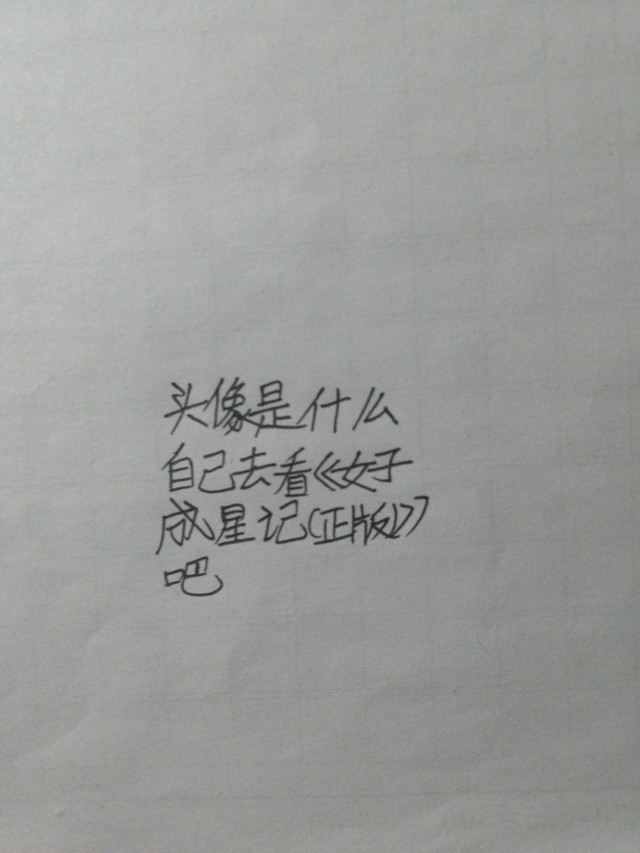 头像是什么
自己去看《女子
成星记(正版)》
吧